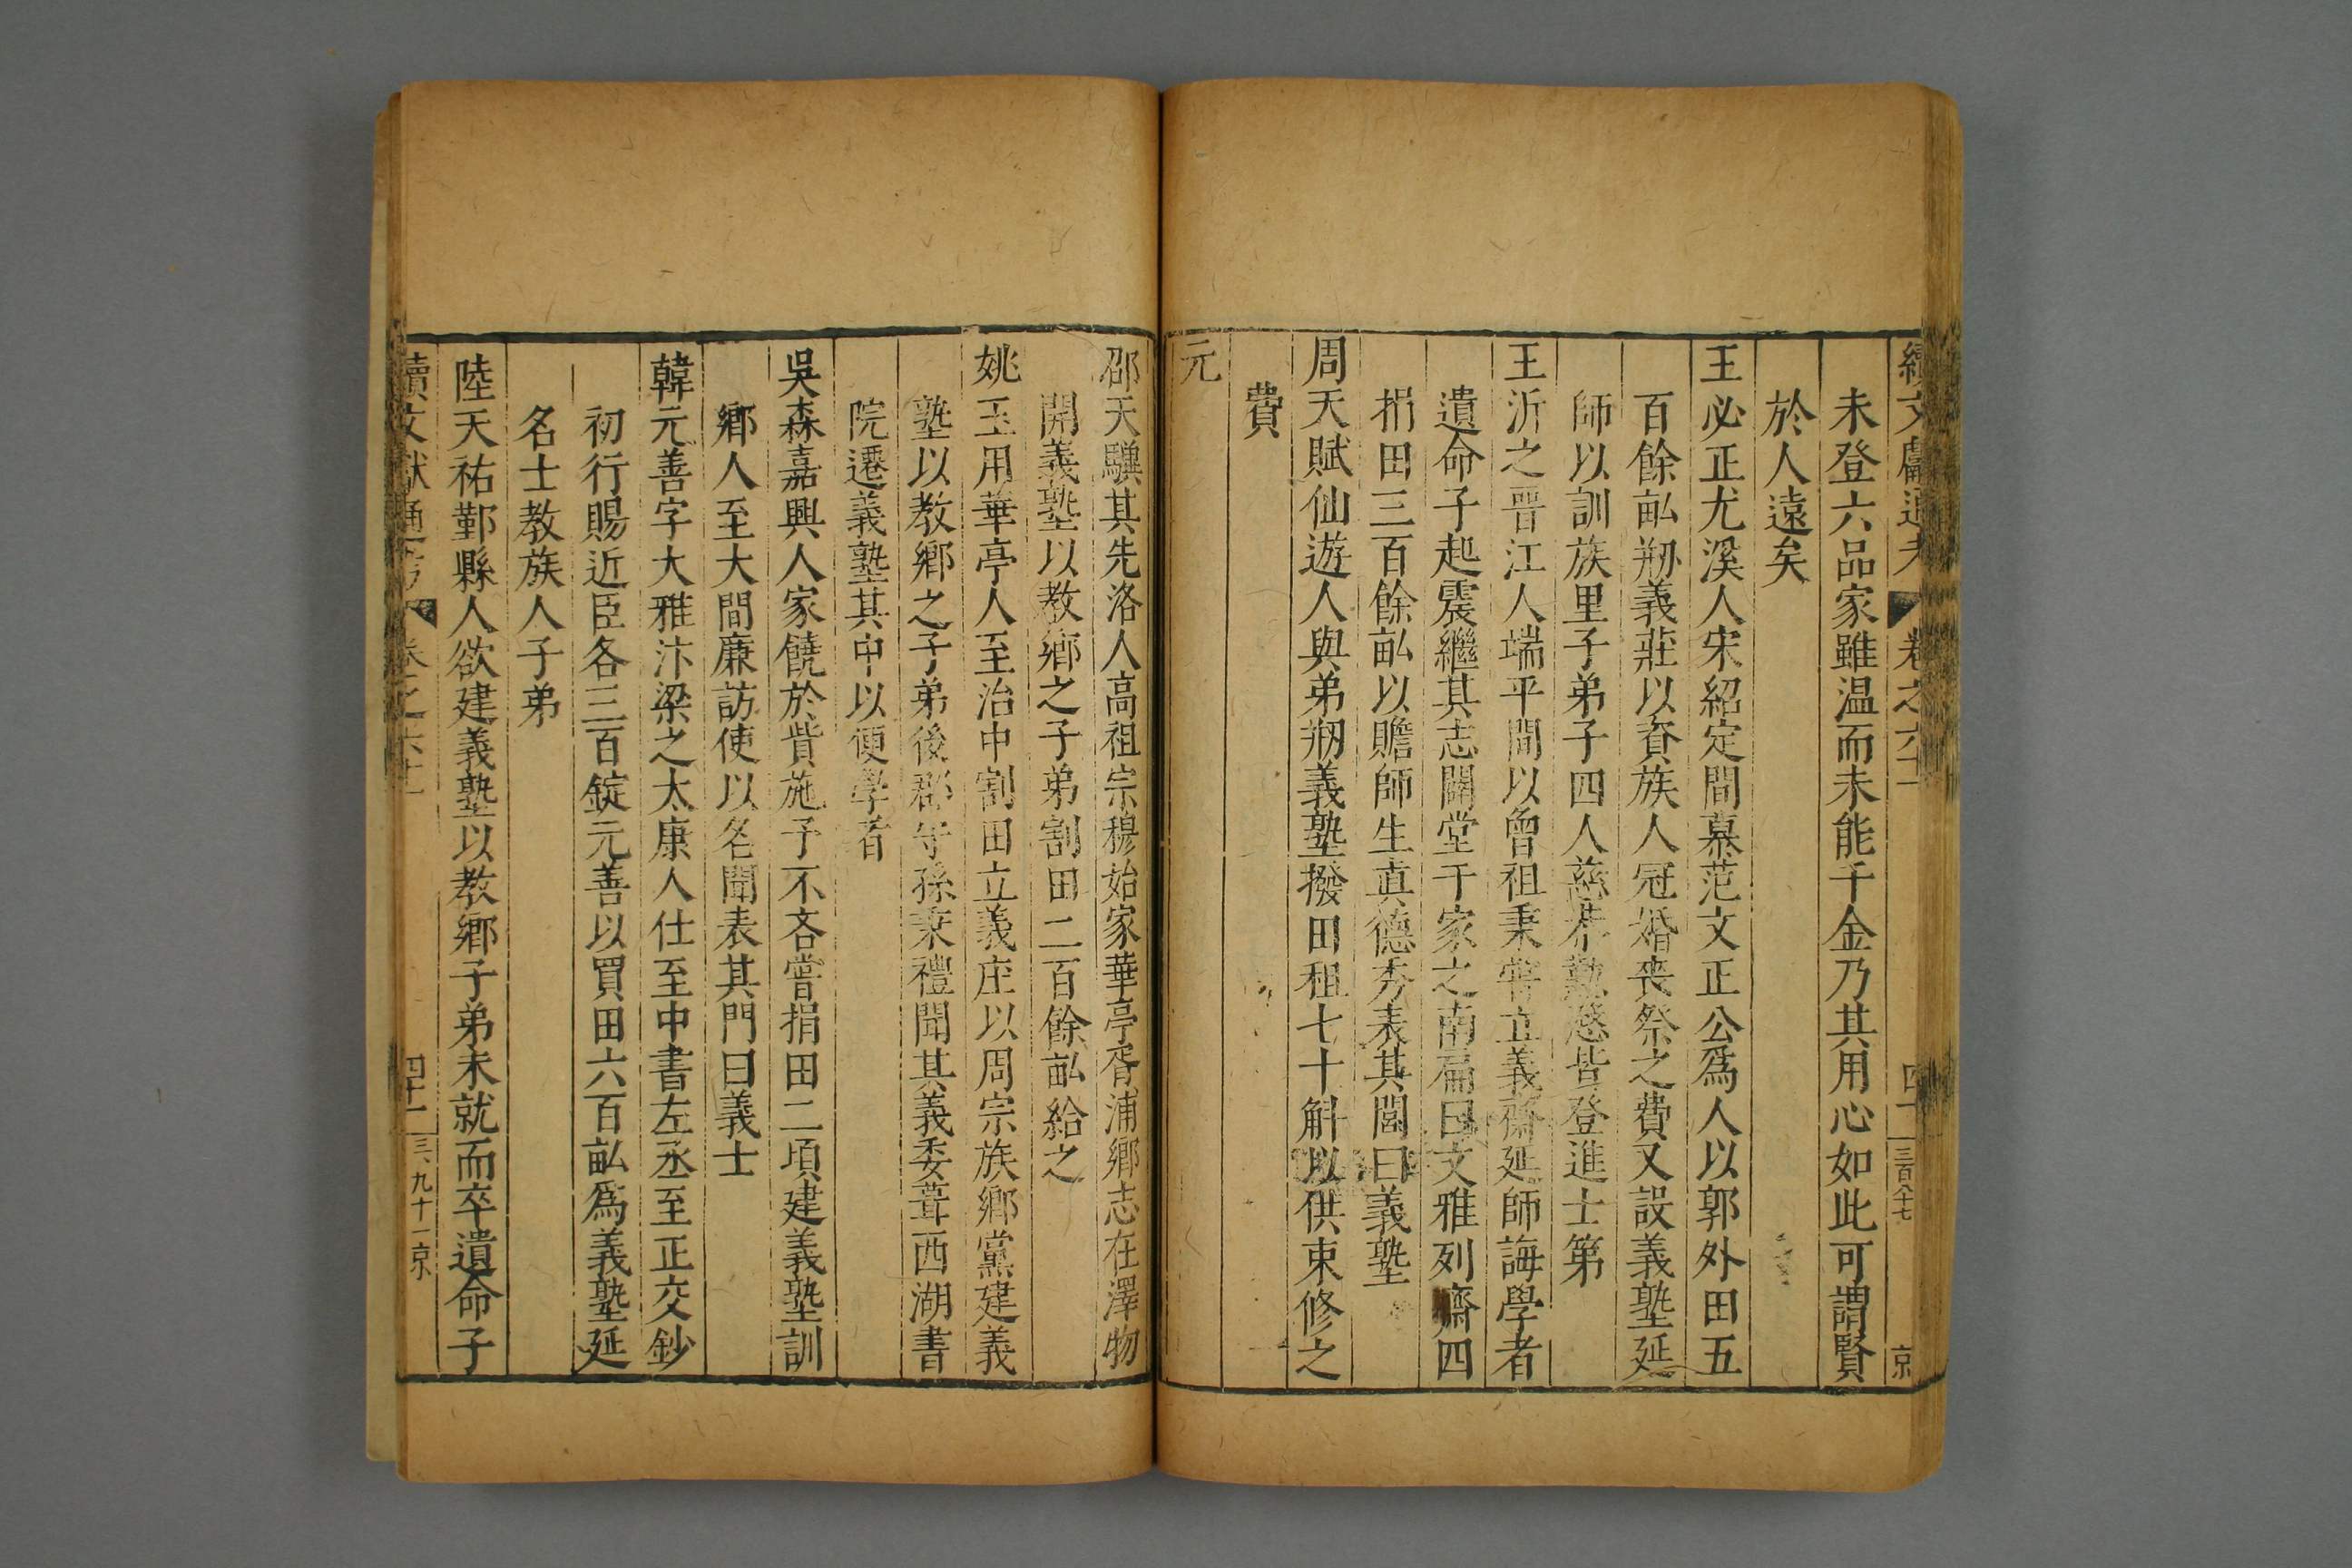 續文獻通考 卷之六十一 四十 三百八十七 京
未登六品家雖温而未能千金乃其用心如此可謂賢
於人遠矣
王必正尤溪人宋紹定間慕范文正公爲人以郭外田五
百餘畝剏義莊以資族人冠婚喪祭之費又設義塾延
師以訓族里子弟子四人慈 勲 皆登進士第
王沂之晉江人端平間以曾祖秉 嘗立義齋延師誨學者
遺命子起震繼其志闢堂于家之南扁曰文雅列齋四
捐田三百餘畝以贍師生真德秀表其閭曰義塾
周天賦仙遊人與弟剏義塾撥田租七十斛以供束修之
費
元
邵天驥其先洛人高祖宗穆始家華亭胥浦鄉志在澤物
開義塾以教鄉之子弟割田二百餘畝給之
姚玉用華亭人至治中割田立義庄以周宗族鄉黨建義
塾以教鄉之子弟後郡守孫秉禮聞其義委葺西湖書
院遷義塾其中以便學者
吳森嘉興人家饒於貲施予不吝嘗捐田二頃建義塾訓
鄉人至大間廉訪使以名聞表其門曰義士
韓元善字大雅汴梁之太康人仕至中書左丞至正交鈔
初行賜近臣各三百錠元善以買田六百畝爲義塾延
名士教族人子弟
陸天祐鄞縣人欲建義塾以教鄉子弟未就而卒遺命子
續文獻通考 卷之六十一 四十一 三九十一京